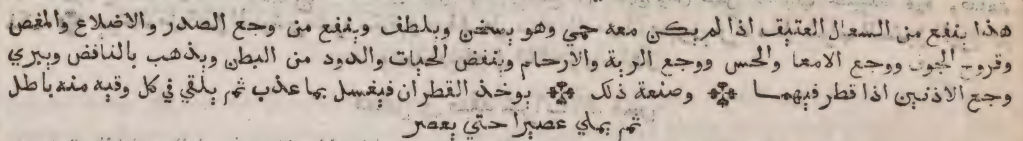 هذا ينفع من السعال العتيق اذا لم يكن معه حمي وهو يسخن ويلطف وينفع من وجع الصدر والاضلاع والمغص
وقروح الجوف ووجع الامعا والحس ووجع الرية والارحام وينفض الحيات والدود من البطن ويذهب بالنافض ويبري
وجع الاذنين اذا قطر فيهمــا ۞ وصنعة ذلك ۞ يوخذ القطران فيغسل بما عذب ثم يلقي في كل وقية منه باطل
ثم يملي عصيرا حتي يعصر